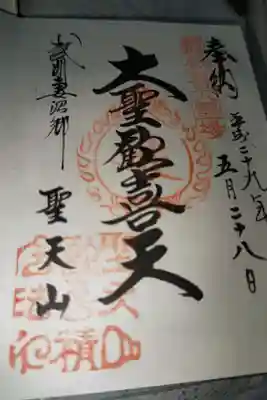 奉納
平成二十九年
五月二十八日
大聖歓喜天
武州妻沼郷
聖天山